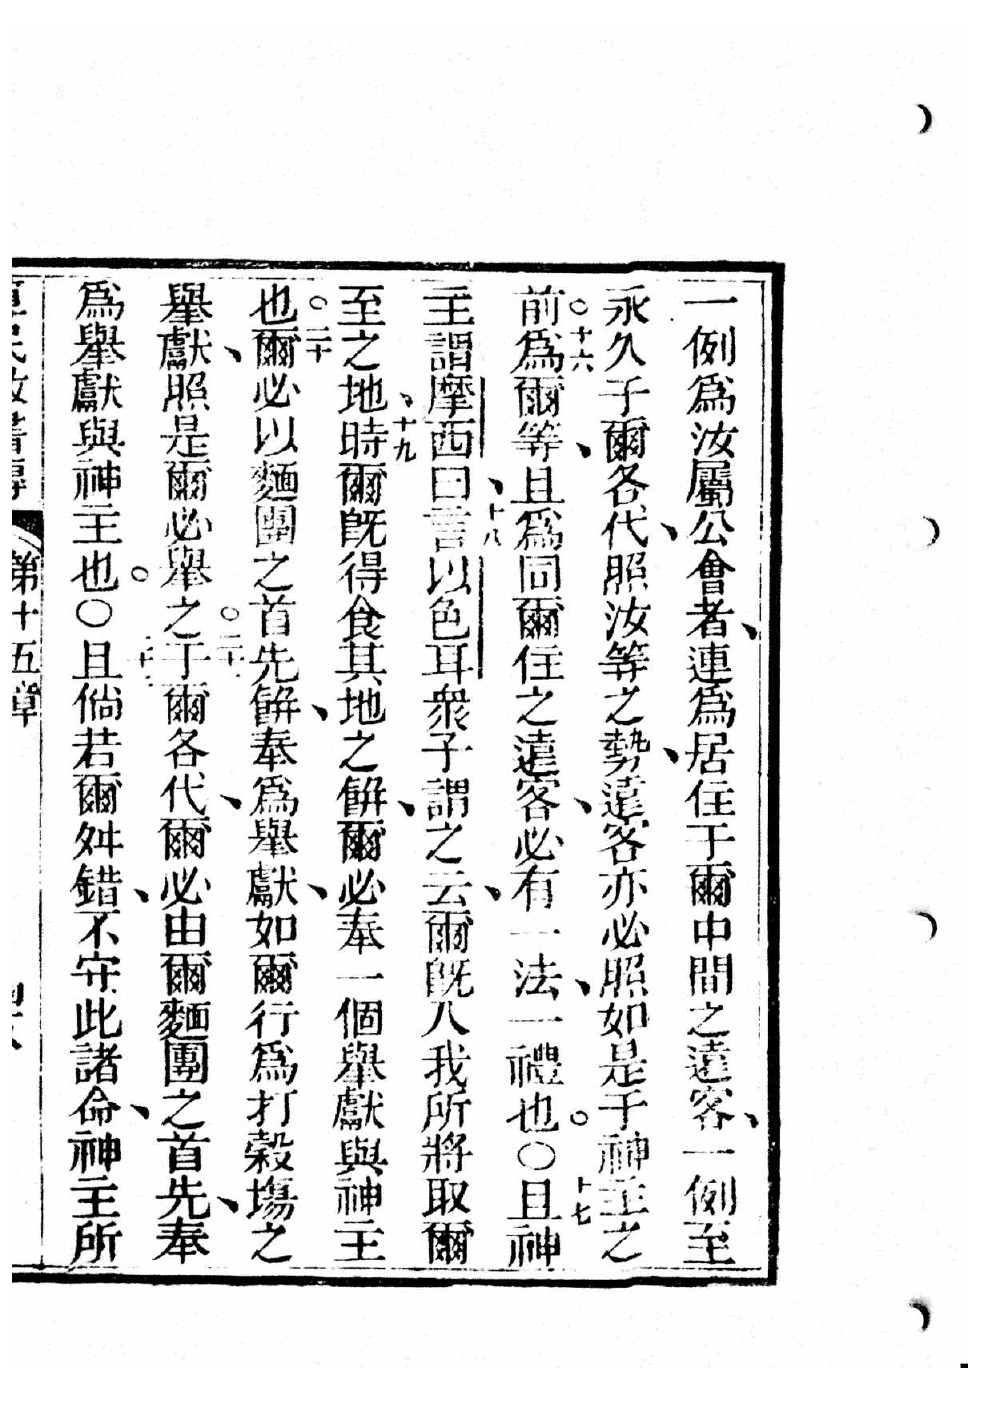 一例爲汝屬公會者、連爲居住于爾中間之遠客、一例至
永久于爾各代、照汝等之勢、遠客亦必照如是于神主之
前。十六爲爾等、且爲同爾住之遠客、必有一法、一禮也。〇十七且神
主謂摩西曰、十八言以色耳衆子謂之云、爾旣入我所將取爾
至之地、十九時爾旣得食其地之餅、爾必奉一個舉獻與神主
也。二十爾必以麵團之首先餅、奉爲舉獻、如爾行爲打穀塲之
舉獻、照是爾必舉之。二十一于爾各代、爾必由爾麵團之首先、奉
爲舉獻與神主也。〇且倘若爾舛錯、不守此諸命、神主所
第十五章